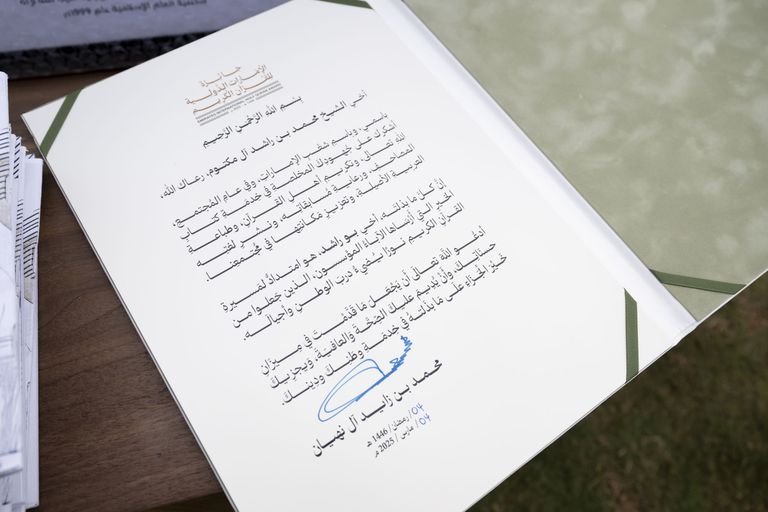 جائزة
الإمارات الدولية
للقرآن الكريم
EMIRATES INTERNATIONAL HOLY QURAN AWARD
بسم الله الرحمن الرحيم
أخي الشيخ محمد بن راشد آل مكتوم، رعاك الله،
باسمي، وباسم شعب الإمارات، وفي عام المُجتمع،
أشكرك على جُهودك المخلصة في خدمة كتاب
الله تعالى، وتكريم أهل القرآن، وطباعة
المصاحف، ورعاية مُسابقاته، ونشر لُغته
العربية الأصيلة، وتعزيز مَكانتِها في مُجتمعِنا.
إنّ كل ما بذلته، أخي بو راشد، هو امتدادٌ لمسيرة
الخير التي أرساها الآباء المؤسسون، الذين جعلوا من
القرآن الكريم نورًا يُضيءُ دربَ الوطنِ وأجياله.
أدعو الله تعالى أن يَجْعَل مَا قَدَّمْتَ في ميزان
حسناتِك، وأنْ يُديمَ عليكَ الصِّحَّةَ والعَافيةَ، ويجزيكَ
خَيْرَ الجَزاءِ على مَا بذلتَهُ في خدمةِ وطنِكَ ودينِكَ.
محمد بن زايد آل نهيان
04/ رمضان / 1446 هـ
04/ مارس / 2025 م